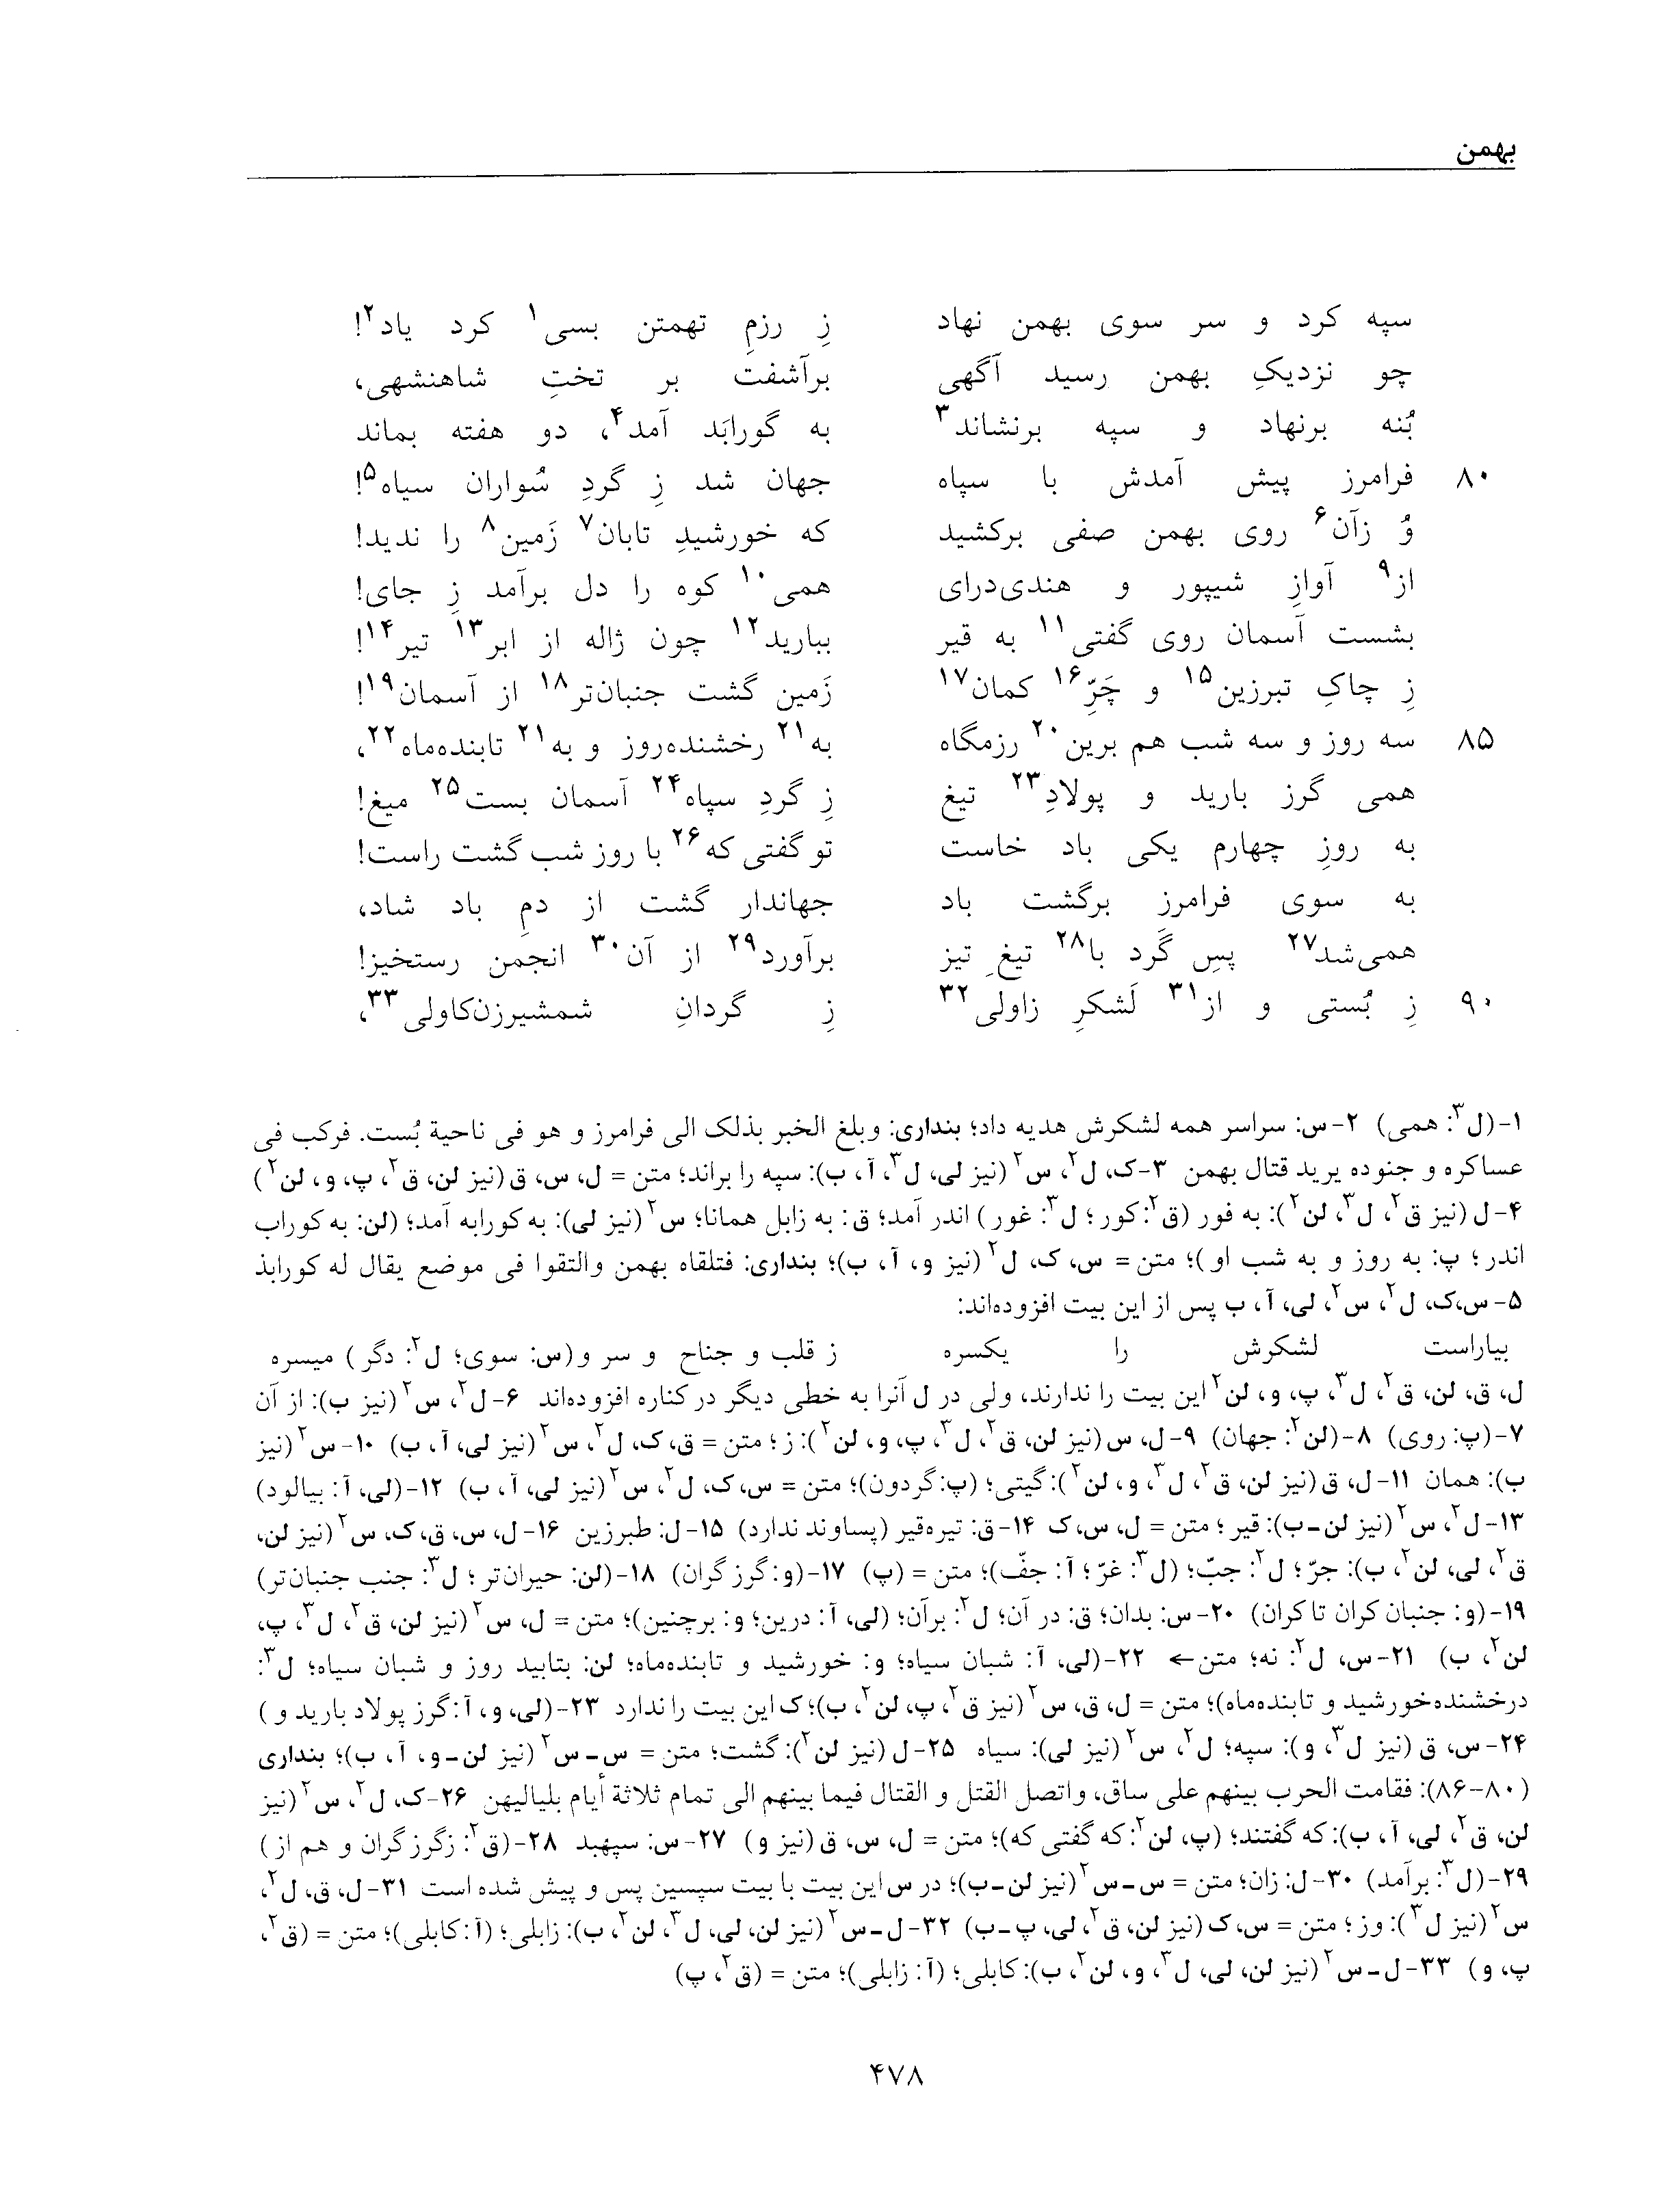 بهمن
سپه کرد و سر سوی بهمن نهاد زِ رزمِ تهمتن بسی۱ کرد یاد۲!
چو نزدیکِ بهمن رسید آگهی برآشفت بر تختِ شاهنشهی،
بُنه برنهاد و سپه برنشاند۳ به گورابَد آمد۴، دو هفته بماند
۸۰ فرامرز پیش آمدش با سپاه جهان شد زِ گردِ سُواران سیاه۵!
وُ زآن۶ روی بهمن صفی برکشید که خورشیدِ تابان۷ زَمین۸ را ندید!
از۹ آوازِ شیپور و هندی‌درای همی۱۰ کوه را دل برآمد زِ جای!
بشست آسمان روی گفتی۱۱ به قیر ببارید۱۲ چون ژاله از ابر۱۳ تیر۱۴!
زِ چاکِ تبرزین۱۵ و چَرِّ۱۶ کمان۱۷ زَمین گشت جنبان‌تر۱۸ از آسمان۱۹!
۸۵ سه روز و سه شب هم برین۲۰ رزمگاه به۲۱ رخشنده‌روز و به۲۱ تابنده‌ماه۲۲،
همی گرز بارید و پولادِ۲۳ تیغ زِ گردِ سپاه۲۴ آسمان بست۲۵ میغ!
به روزِ چهارم یکی باد خاست تو گفتی که۲۶ با روز شب گشت راست!
به سوی فرامرز برگشت باد جهاندار گشت از دمِ باد شاد،
همی‌شد۲۷ پسِ گَرد با۲۸ تیغِ تیز برآورد۲۹ از آن۳۰ انجمن رستخیز!
۹۰ زِ بُستی و از۳۱ لَشکرِ زاولی۳۲ زِ گردانِ شمشیرزن‌کاولی۳۳،
۱-(ل۳: همی) ۲-س: سراسر همه لشکرش هدیه داد؛ بنداری: وبلغ الخبر بذلک الی فرامرز و هو فی ناحیة بُست. فرکب فی
عساکره و جنوده یرید قتال بهمن ۳-ک، ل۲، س۲ (نیز لی، ل۳، آ، ب): سپه را براند؛ متن = ل، س، ق (نیز لن، ق۲، پ، و، لن۲)
۴-ل (نیز ق۲، ل۳، لن۲): به فور (ق۲: کور؛ ل۳: غور) اندر آمد؛ ق: به زابل همانا؛ س۲ (نیز لی): به کورابه آمد؛ (لن: به کوراب
اندر؛ پ: به روز و به شب او)؛ متن = س، ک، ل۲ (نیز و، آ، ب)؛ بنداری: فتلقاه بهمن والتقوا فی موضع یقال له کورابذ
۵-س، ک، ل۲، س۲، لی، آ، ب پس از این بیت افزوده‌اند:
بیاراست لشکرش را یکسره ز قلب و جناح و سر و (س: سوی؛ ل۲: دگر) میسره
ل، ق، لن، ق۲، ل۳، پ، و، لن۲ این بیت را ندارند، ولی در ل آنرا به خطی دیگر در کناره افزوده‌اند ۶-ل۲، س۲ (نیز ب): از آن
۷-(پ: روی) ۸-(لن۲: جهان) ۹-ل، س (نیز لن، ق۲، ل۳، پ، و، لن۲): ز؛ متن = ق، ک، ل۲، س۲ (نیز لی، آ، ب) ۱۰-س۲ (نیز
ب): همان ۱۱-ل، ق (نیز لن، ق۲، ل۳، و، لن۲): گیتی؛ (پ: گردون)؛ متن = س، ک، ل۲، س۲ (نیز لی، آ، ب) ۱۲-(لی، آ: بیالود)
۱۳-ل۲، س۲ (نیز لن-ب): قیر؛ متن = ل، س، ک ۱۴-ق: تیره‌قیر (پساوند ندارد) ۱۵-ل: طبرزین ۱۶-ل، س، ق، ک، س۲ (نیز لن،
ق۲، لی، لن۲، ب): جرّ؛ ل۲: جبّ؛ (ل۳: غرّ؛ آ: جفّ)؛ متن = (پ) ۱۷-(و: گرز گران) ۱۸-(لن: حیران‌تر؛ ل۳: جنب جنبان‌تر)
۱۹-(و: جنبان کران تا کران) ۲۰-س: بدان؛ ق: در آن؛ ل۲: برآن؛ (لی، آ: درین؛ و: برچنین)؛ متن = ل، س۲ (نیز لن، ق۲، ل۳، پ،
لن۲، ب) ۲۱-س، ل۲: نه؛ متن← ۲۲-(لی، آ: شبان سیاه؛ و: خورشید و تابنده‌ماه؛ لن: بتابید روز و شبان سیاه؛ ل۳:
درخشنده‌خورشید و تابنده‌ماه)؛ متن = ل، ق، س۲ (نیز ق۲، پ، لن۲، ب)؛ ک این بیت را ندارد ۲۳-(لی، و، آ: گرز پولاد بارید و)
۲۴-س، ق (نیز ل۳، و): سپه؛ ل۲، س۲ (نیز لی): سیاه ۲۵-ل (نیز لن۲): گشت؛ متن = س-س۲ (نیز لن-و، آ، ب)؛ بنداری
(۸۰-۸۶): فقامت الحرب بینهم علی ساق، واتصل القتل و القتال فیما بینهم الی تمام ثلاثة أیام بلیالیهن ۲۶-ک، ل۲، س۲ (نیز
لن، ق۲، لی، آ، ب): که گفتند؛ (پ، لن۲: که گفتی که)؛ متن = ل، س، ق (نیز و) ۲۷-س: سپهبد ۲۸-(ق۲: زگرز گران و هم از)
۲۹-(ل۳: برآمد) ۳۰-ل: زان؛ متن = س-س۲ (نیز لن-ب)؛ در س این بیت با بیت سپسین پس و پیش شده است ۳۱-ل، ق، ل۲،
س۲ (نیز ل۳): وز؛ متن = س، ک (نیز لن، ق۲، لی، پ-ب) ۳۲-ل-س۲ (نیز لن، لی، ل۳، لن۲، ب): زابلی؛ (آ: کابلی)؛ متن = (ق۲،
پ، و) ۳۳-ل-س۲ (نیز لن، لی، ل۳، و، لن۲، ب): کابلی؛ (آ: زابلی)؛ متن = (ق۲، پ)
۴۷۸